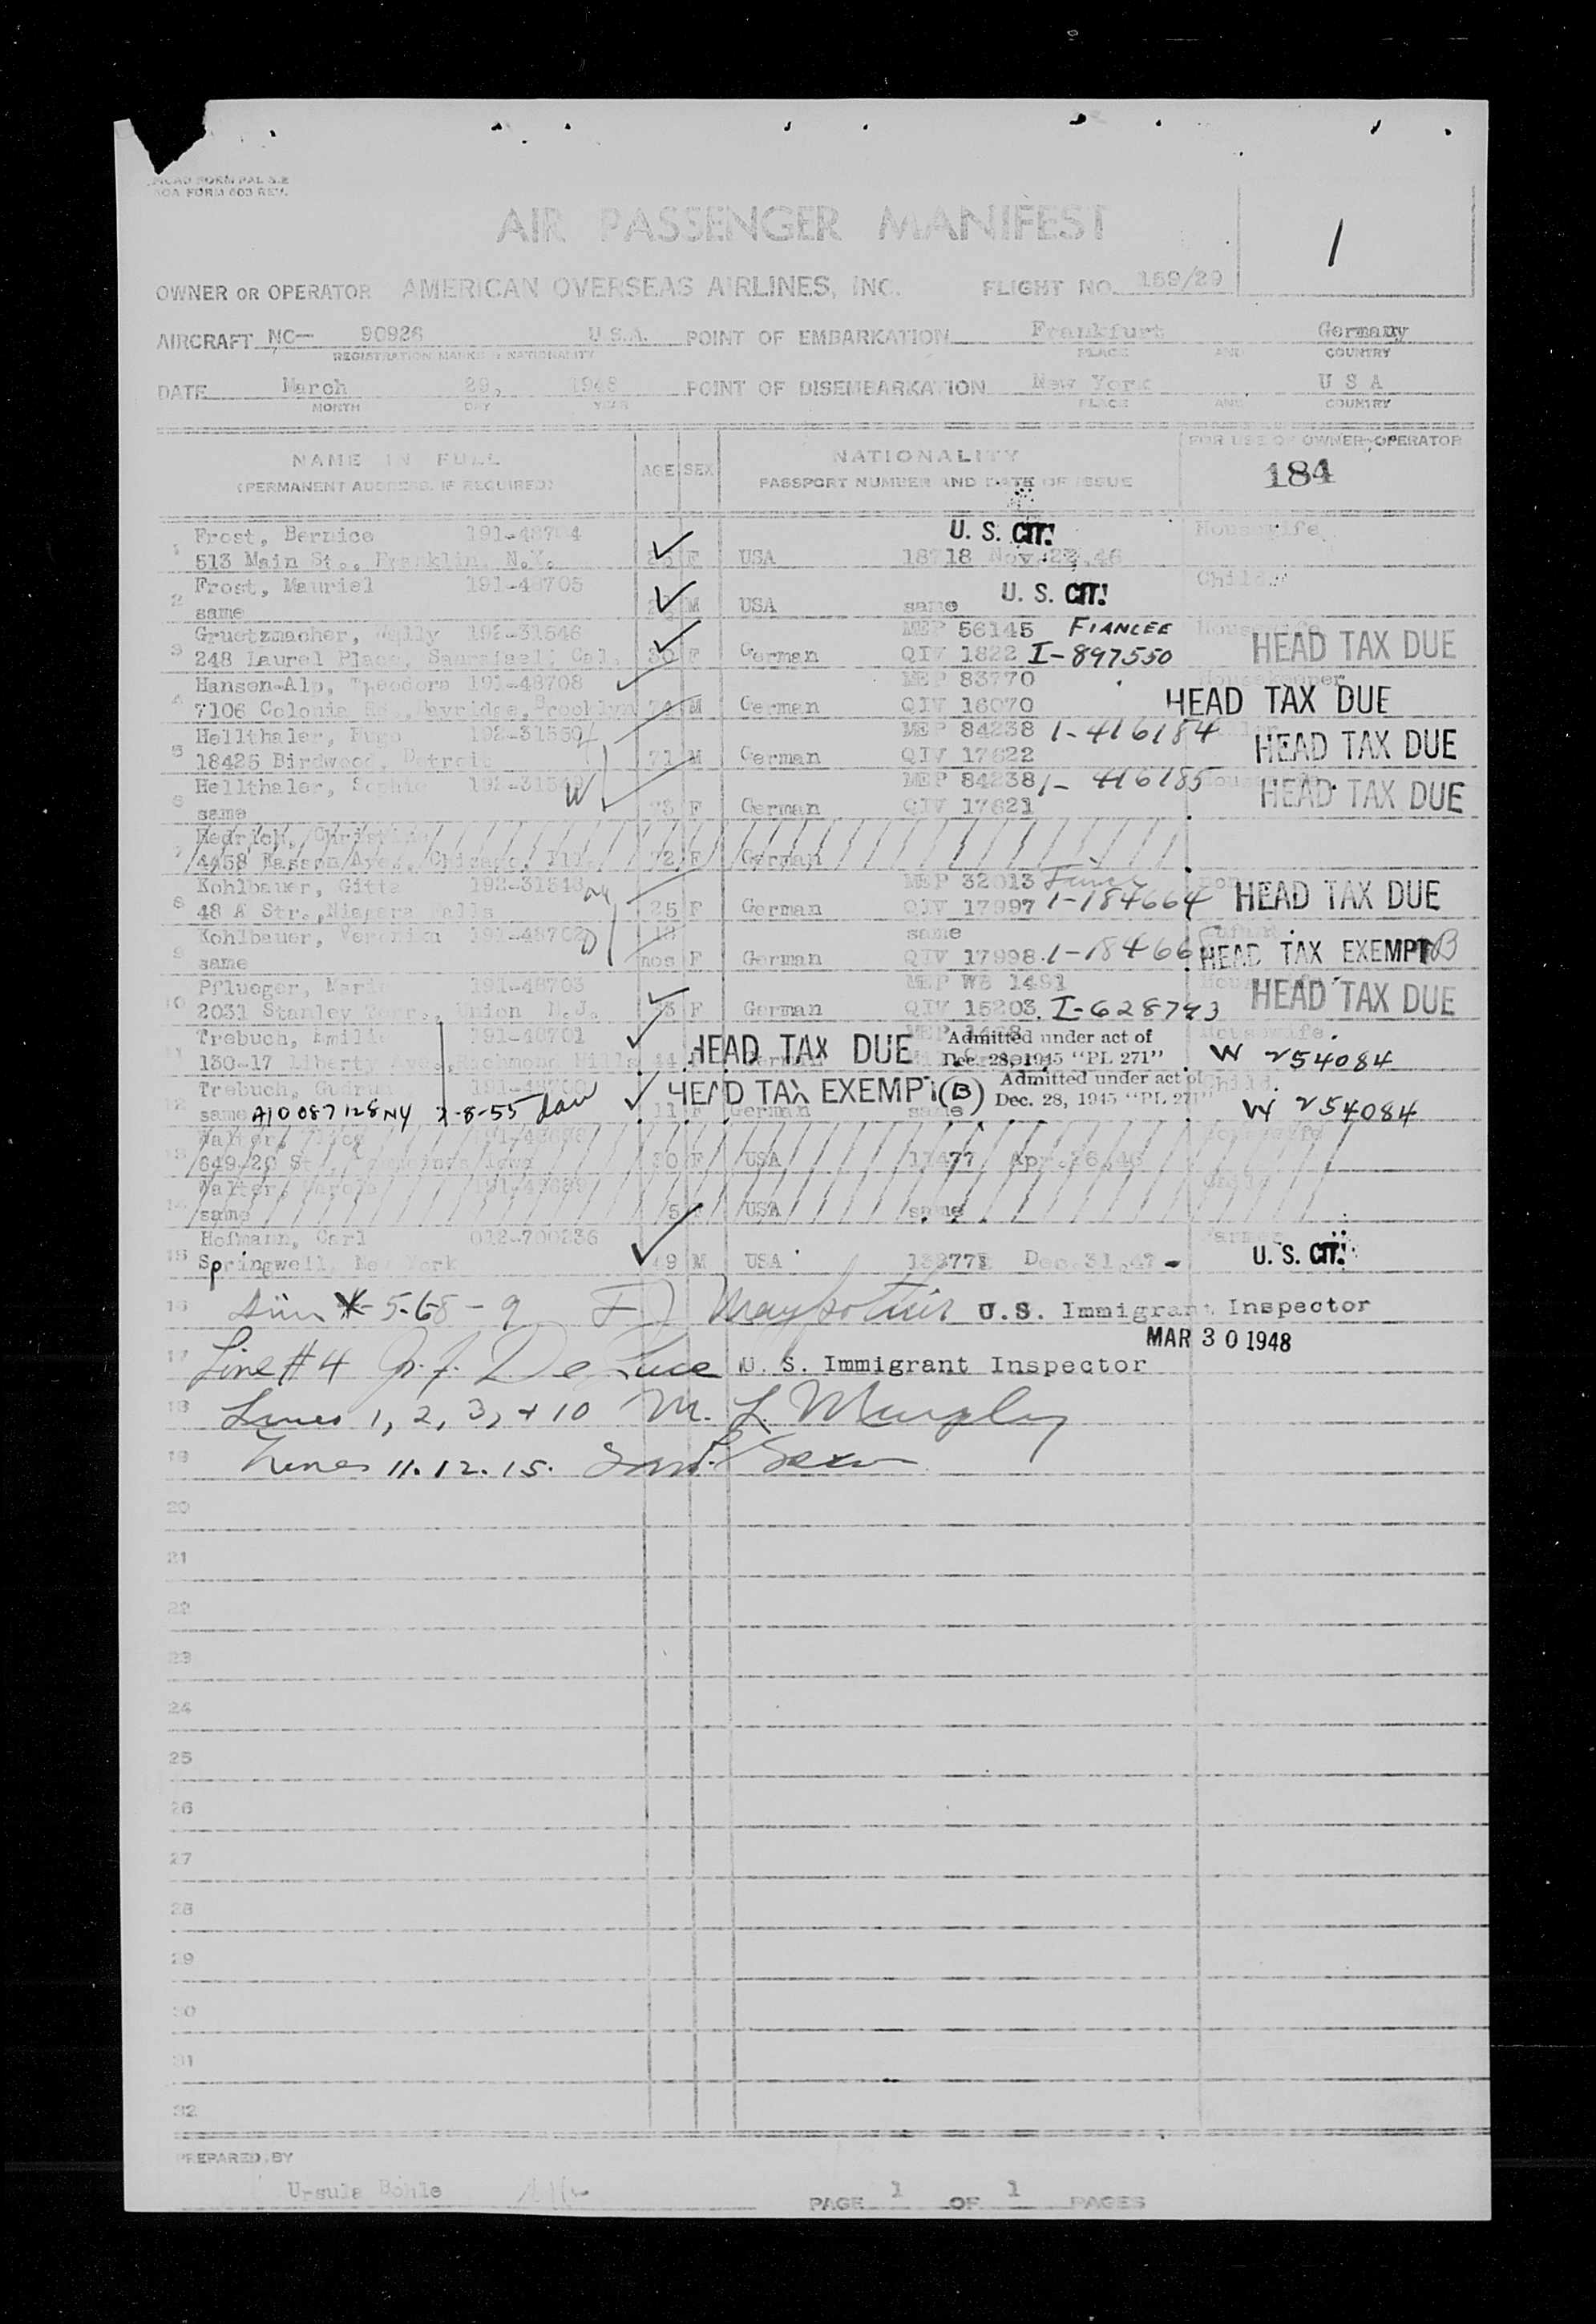 AOA FORM 603 REV.
AIR PASSENGER MANIFEST
1
OWNER OR OPERATOR AMERICAN OVERSEAS AIRLINES, INC. FLIGHT NO. 159/29
AIRCRAFT NC— 90926 U.S.A. POINT OF EMBARKATION Frankfurt Germany
REGISTRATION MARKS & NATIONALITY PLACE AND COUNTRY
DATE March 29, 1948 POINT OF DISEMBARKATION New York U S A
MONTH DAY YEAR PLACE AND COUNTRY
NAME IN FULL AGE SEX NATIONALITY FOR USE OF OWNER-OPERATOR
(PERMANENT ADDRESS, IF REQUIRED) PASSPORT NUMBER AND DATE OF ISSUE 184
Frost, Bernice 191-48704 U. S. CIT! Housewife
1 513 Main St., Franklin, F USA 18718 Nov. 46
Frost, Mauriel 191-48705 U. S. CIT! Child
2 same M USA same
Gruetzmacher, 192-31546 MEP 56145 FIANCEE
3 248 Laurel Place, Cal. 30 F German QIV 1822 I-897550 HEAD TAX DUE
Hansen-Alp, Theodore 191-48708 MEP 83770 Housekeeper
4 7106 Colonial Bayridge, Brooklyn 74 M German QIV 16070 HEAD TAX DUE
Hellthaler, Hugo MEP 84238 1-416184
5 18425 Birdwood, Detroit 71 M German QIV 17622 HEAD TAX DUE
Hellthaler, Sophie MEP 84238 1-416185
6 same F German QIV 17621 HEAD TAX DUE
Hedrich, Christine
7 Ave., Chicago, Ill. 72 F German
Kohlbauer, Gitta 192-31548 MEP 32013
8 48 A Str., Niagara Falls 25 F German QIV 17997 1-184664 HEAD TAX DUE
Kohlbauer, Veronika 191-48702 same
9 same mos F German QIV 17998 HEAD TAX EXEMPT B
Pflueger, 191-48703 MEP WB 1491
10 2031 Stanley Terr., Union N.J. F German QIV 15203 I-628793 HEAD TAX DUE
Trebuch, Emilie 191-48701 Admitted under act of Housewife.
11 130-17 Liberty Ave, Richmond Hills 44 HEAD TAX DUE Dec. 28, 1945 "PL 271" W 254084
Trebuch, Gudrun 191-48700 HEAD TAX EXEMPT (B) Admitted under act of Child.
12 same A10 087 128 NY 11 F German same Dec. 28, 1945 "PL 271" W 254084
Walter,
13 649/20 30 F USA Apr.
Walter, Carole
14 same 5 USA same
Hofmann, Carl 012-700236 Farmer
15 Springwell, New York 49 M USA Dec. 31, 47 - U. S. CIT!
16 U.S. Immigrant Inspector
MAR 30 1948
17 Line #4 U. S. Immigrant Inspector
18 Lines 1, 2, 3, + 10 M. L. Murphy
19 Lines 11. 12. 15.
20
21
22
23
24
25
26
27
28
29
30
31
32
PREPARED BY
Ursula Bohle PAGE 1 OF 1 PAGES